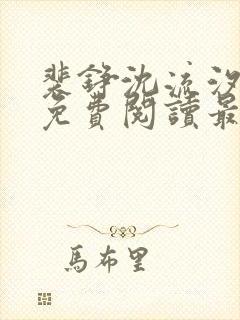 裴錚沈流汐
免費閱讀最
馬布里